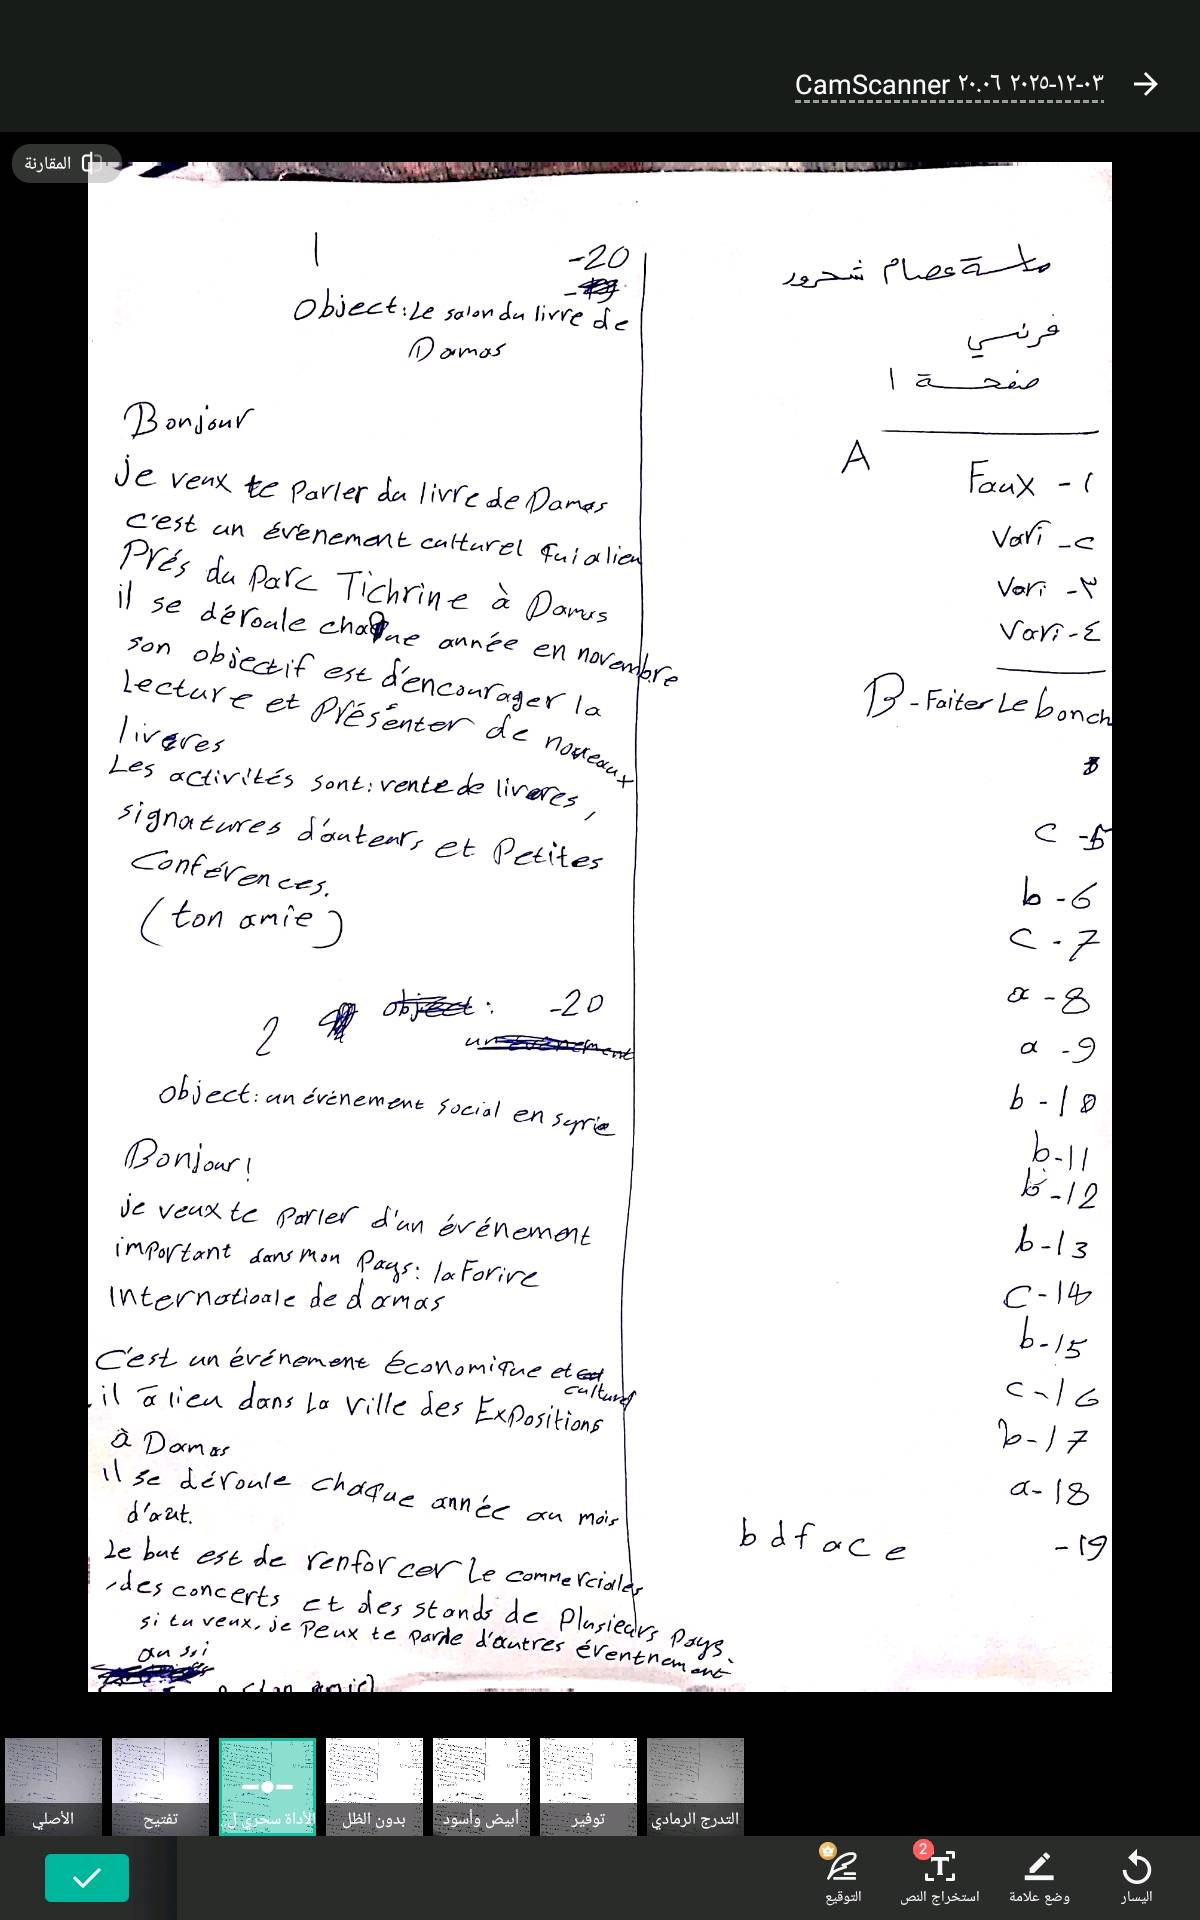 CamScanner ٢٠.٠٦ ٢٠٢٥-١٢-٠٣
المقارنة
ماسة عصام شحرور
فرنسي
صفحة ١
A
Faux - ١
Vari - ٢
Vari - ٣
Vari - ٤
B - Faiter Le bonch
c - 5
b - 6
c - 7
a - 8
a - 9
b - 10
b - 11
b - 12
b - 13
c - 14
b - 15
c - 16
b - 17
a - 18
b d f a c e - 19
1
-20
Object: Le salon du livre de
Damas
Bonjour
je veux te Parler du livre de Damas
c'est un événement culturel qui a lieu
Prés du Parc Tichrine à Damas
il se déroule chaque année en novembre
son objectif est d'encourager la
Lecture et Présenter de nouveaux
livres
Les activités sont: vente de livres,
signatures d'auteurs et Petites
Conférences.
(ton amie)
2
object: -20
object: un événement social en syrie
Bonjour!
je veux te Parler d'un événement
important dans mon Pays: la Forire
Internatioale de damas
C'est un événement économique et culturel
il a lieu dans La ville des Expositions
à Damas
il se déroule chaque année au mois
d'aût.
Le but est de renforcer Le commerciales
, des concerts et des stands de Plusieurs Pays.
si tu veux, je Peux te parle d'autres éventnement
aussi
(ton amie)
الأصلي
تفتيح
الأداة سحري ل..
بدون الظل
أبيض وأسود
توفير
التدرج الرمادي
التوقيع
2
استخراج النص
وضع علامة
اليسار